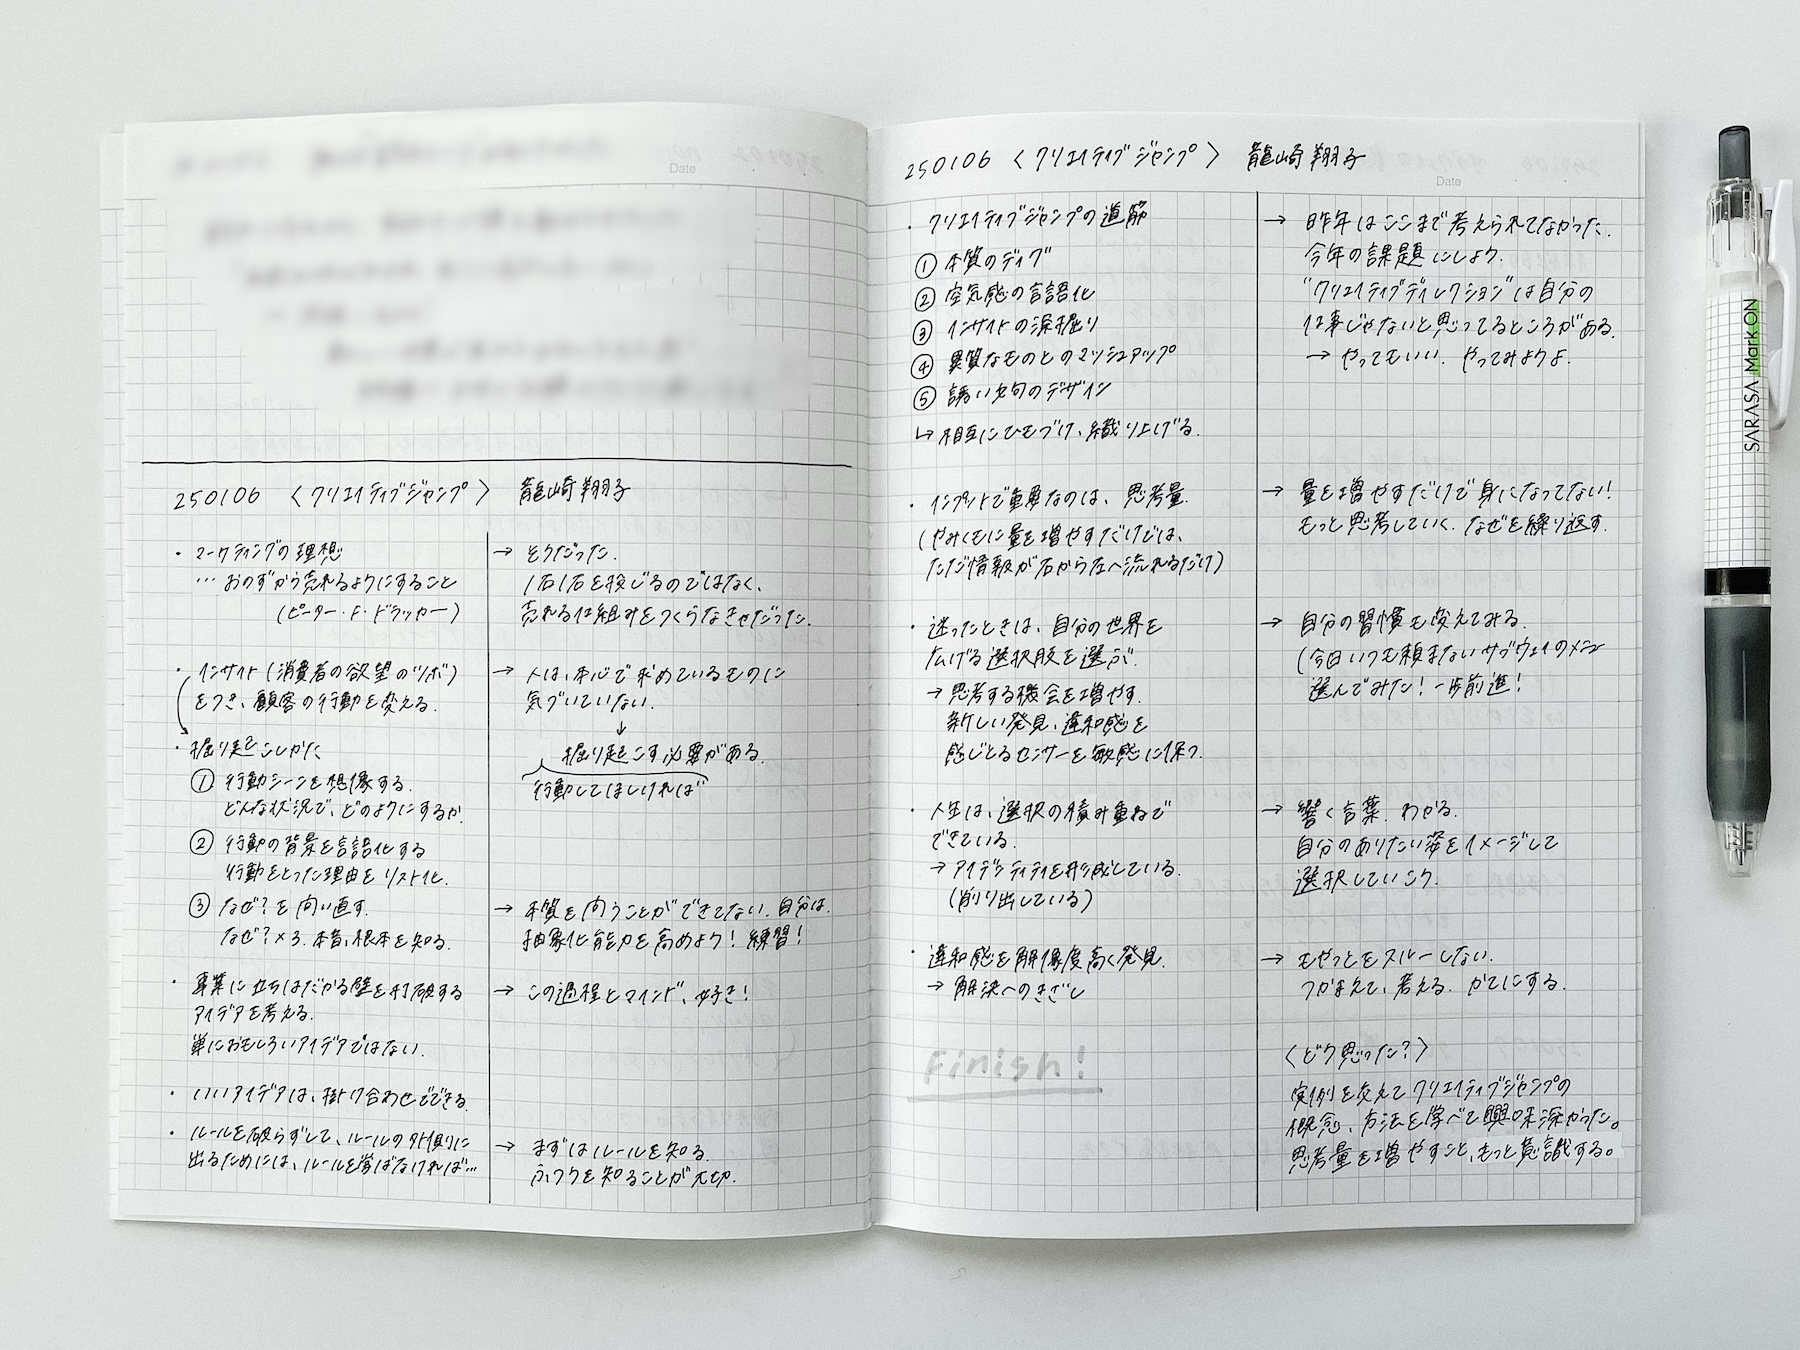 Date
250106 〈クリエイティブジャンプ〉 龍崎翔子
・マーケティングの理想
… おのずから売れるようにすること
(ピーター・F・ドラッカー)
→ そうだった.
1石1石を投じるのではなく、
売れる仕組みをつくらなきゃだった.
・インサイト(消費者の欲望のツボ)
をつき、顧客の行動を変える.
→ 人は、本心で求めているものに
気づいていない.
↓
掘り起こす必要がある.
行動してほしければ
・掘り起こしかた
① 行動シーンを想像する.
どんな状況で、どのようにするか.
② 行動の背景を言語化する
行動をとった理由をリスト化.
③ なぜ?を問い直す.
なぜ?×3. 本音、根本を知る.
→ 本質を問うことができてない. 自分は.
抽象化能力を高めよう! 練習!
・事業に立ちはだかる壁を打破する
アイデアを考える.
単におもしろいアイデアではない.
→ この過程とマインド、好き!
・いいアイデアは、掛け合わせでできる.
・ルールを破らずして、ルールの外側に
出るためには、ルールを学ばなければ…
→ まずはルールを知る.
ふつうを知ることが大切.
250106 〈クリエイティブジャンプ〉 龍崎翔子
Date
・クリエイティブジャンプの道筋
① 本質のディグ
② 空気感の言語化
③ インサイトの深掘り
④ 異質なものとのマッシュアップ
⑤ 誘い文句のデザイン
↳ 相互にひもづけ、織り上げる.
→ 昨年はここまで考えられてなかった.
今年の課題にしよう.
“クリエイティブディレクション”は自分の
仕事じゃないと思ってるところがある.
→ やってもいい. やってみようよ.
・インプットで重要なのは、思考量.
(やみくもに量を増やすだけでは、
ただ情報が右から左へ流れるだけ)
→ 量を増やすだけで身になってない!
もっと思考していく. なぜを繰り返す.
・迷ったときは、自分の世界を
広げる選択肢を選ぶ.
→ 思考する機会を増やす.
新しい発見、違和感を
感じとるセンサーを敏感に保つ.
→ 自分の習慣も変えてみる.
(今日いつも頼まないサブウェイのメニュー
選んでみた! 一歩前進!
・人生は、選択の積み重ねで
できている.
→ アイデンティティを形成している.
(削り出している)
→ 響く言葉. わかる.
自分のありたい姿をイメージして
選択していこう.
・違和感を解像度高く発見.
→ 解決へのきざし
→ もやっとをスルーしない.
つかまえて、考える. かてにする.
Finish!
〈どう思った?〉
実例を交えてクリエイティブジャンプの
概念、方法を学べて興味深かった。
思考量を増やすこと、もっと意識する。
SARASA Mark ON